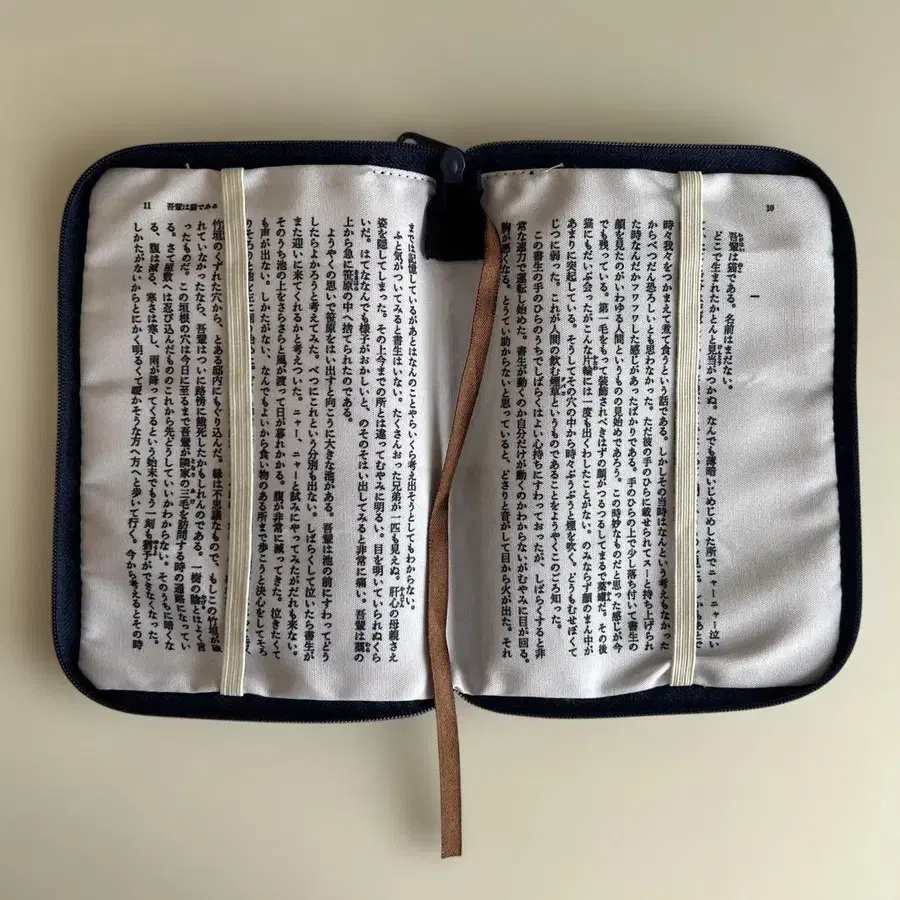 10
一
吾輩は猫である。名前はまだない。
どこで生まれたかとんと見当がつかぬ。なんでも薄暗いじめじめした所でニャーニャー泣い
時々我々をつかまえて煮て食うという話である。しかしその当時はなんという考えもなかった
からべつだん恐ろしいとも思わなかった。ただ彼の手のひらに載せられてスーと持ち上げられ
た時なんだかフワフワした感じがあったばかりである。手のひらの上で少し落ち付いて書生の
顔を見たのがいわゆる人間というものの見始めであろう。この時妙なものだと思った感じが今
でも残っている。第一毛をもって装飾されべきはずの顔がつるつるしてまるで薬罐だ。その後
猫にもだいぶ会ったがこんな片輪には一度も出くわしたことがない。のみならず顔のまん中が
あまりに突起している。そうしてその穴の中から時々ぷうぷうと煙を吹く。どうもむせぽくて
じつに弱った。これが人間の飲む煙草というものであることをようやくこのごろ知った。
この書生の手のひらのうちでしばらくはよい心持ちにすわっておったが、しばらくすると非
常な速力で運転し始めた。書生が動くのか自分だけが動くのかわからないがむやみに目が回る。
胸が悪くなる。とうてい助からないと思っていると、どさりと音がして目から火が出た。それ
11 吾輩は猫である
までは記憶しているがあとはなんのことやらいくら考え出そうとしてもわからない。
ふと気がついてみると書生はいない。たくさんおった兄弟が一匹も見えぬ。肝心の母親さえ
姿を隠してしまった。その上今までの所とは違ってむやみに明るい。目を明いていられぬくら
いだ。はてなんでも様子がおかしいと、のそのそはい出してみると非常に痛い。吾輩は藁の
上から急に笹原の中へ捨てられたのである。
ようやくの思いで笹原をはい出すと向こうに大きな池がある。吾輩は池の前にすわってどう
したらよかろうと考えてみた。べつにこれという分別も出ない。しばらくして泣いたら書生が
また迎いに来てくれるかと考えついた。ニャー、ニャーと試みにやってみたがだれも来ない。
そのうち池の上をさらさらと風が渡って日が暮れかかる。腹が非常に減ってきた。泣きたくて
も声が出ない。しかたがない、なんでもよいから食い物のある所まで歩こうと決心をしてそろ
竹垣のくずれた穴から、とある邸内にもぐり込んだ。縁は不思議なもので、もしこの竹垣が破
れていなかったなら、吾輩はついに路傍に餓死したかもしれんのである。一樹の陰とはよく言
ったものだ。この垣根の穴は今日に至るまで吾輩が隣家の三毛を訪問する時の通路になってい
る。さて屋敷へは忍び込んだもののこれから先どうしていいかわからない。そのうちに暗くな
る、腹は減る、寒さは寒し、雨が降ってくるという始末でもう一刻も猶予ができなくなった。
しかたがないからとにかく明るくて暖かそうな方へ方へと歩いて行く。今から考えるとその時